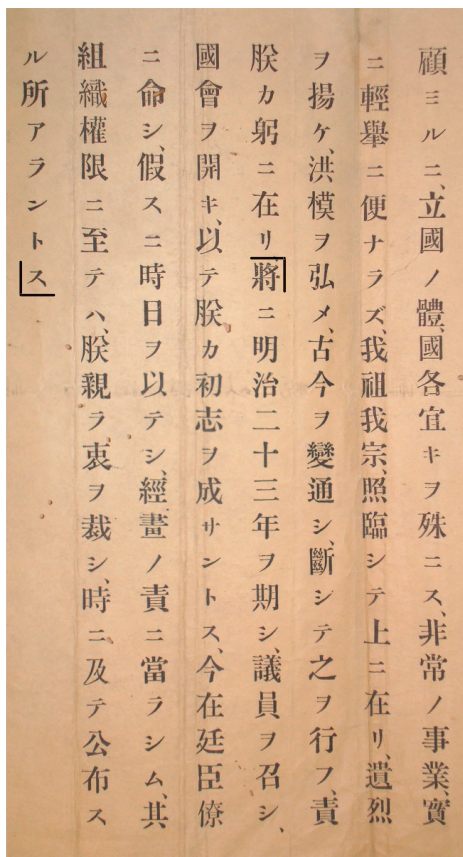 顧ミルニ、立國ノ體、國各宜キヲ殊ニス、非常ノ事業、實
ニ輕擧ニ便ナラズ、我祖我宗、照臨シテ上ニ在リ、遺烈
ヲ揚ケ、洪模ヲ弘メ、古今ヲ變通シ、斷シテ之ヲ行フ、責
朕カ躬ニ在リ、「將ニ明治二十三年ヲ期シ、議員ヲ召シ、
國會ヲ開キ、以テ朕カ初志ヲ成サントス、今在廷臣僚
ニ命シ、假スニ時日ヲ以テシ、經畫ノ責ニ當ラシム、其
組織權限ニ至テハ、朕親ラ衷ヲ裁シ、時ニ及テ公布ス
ル所アラントス」